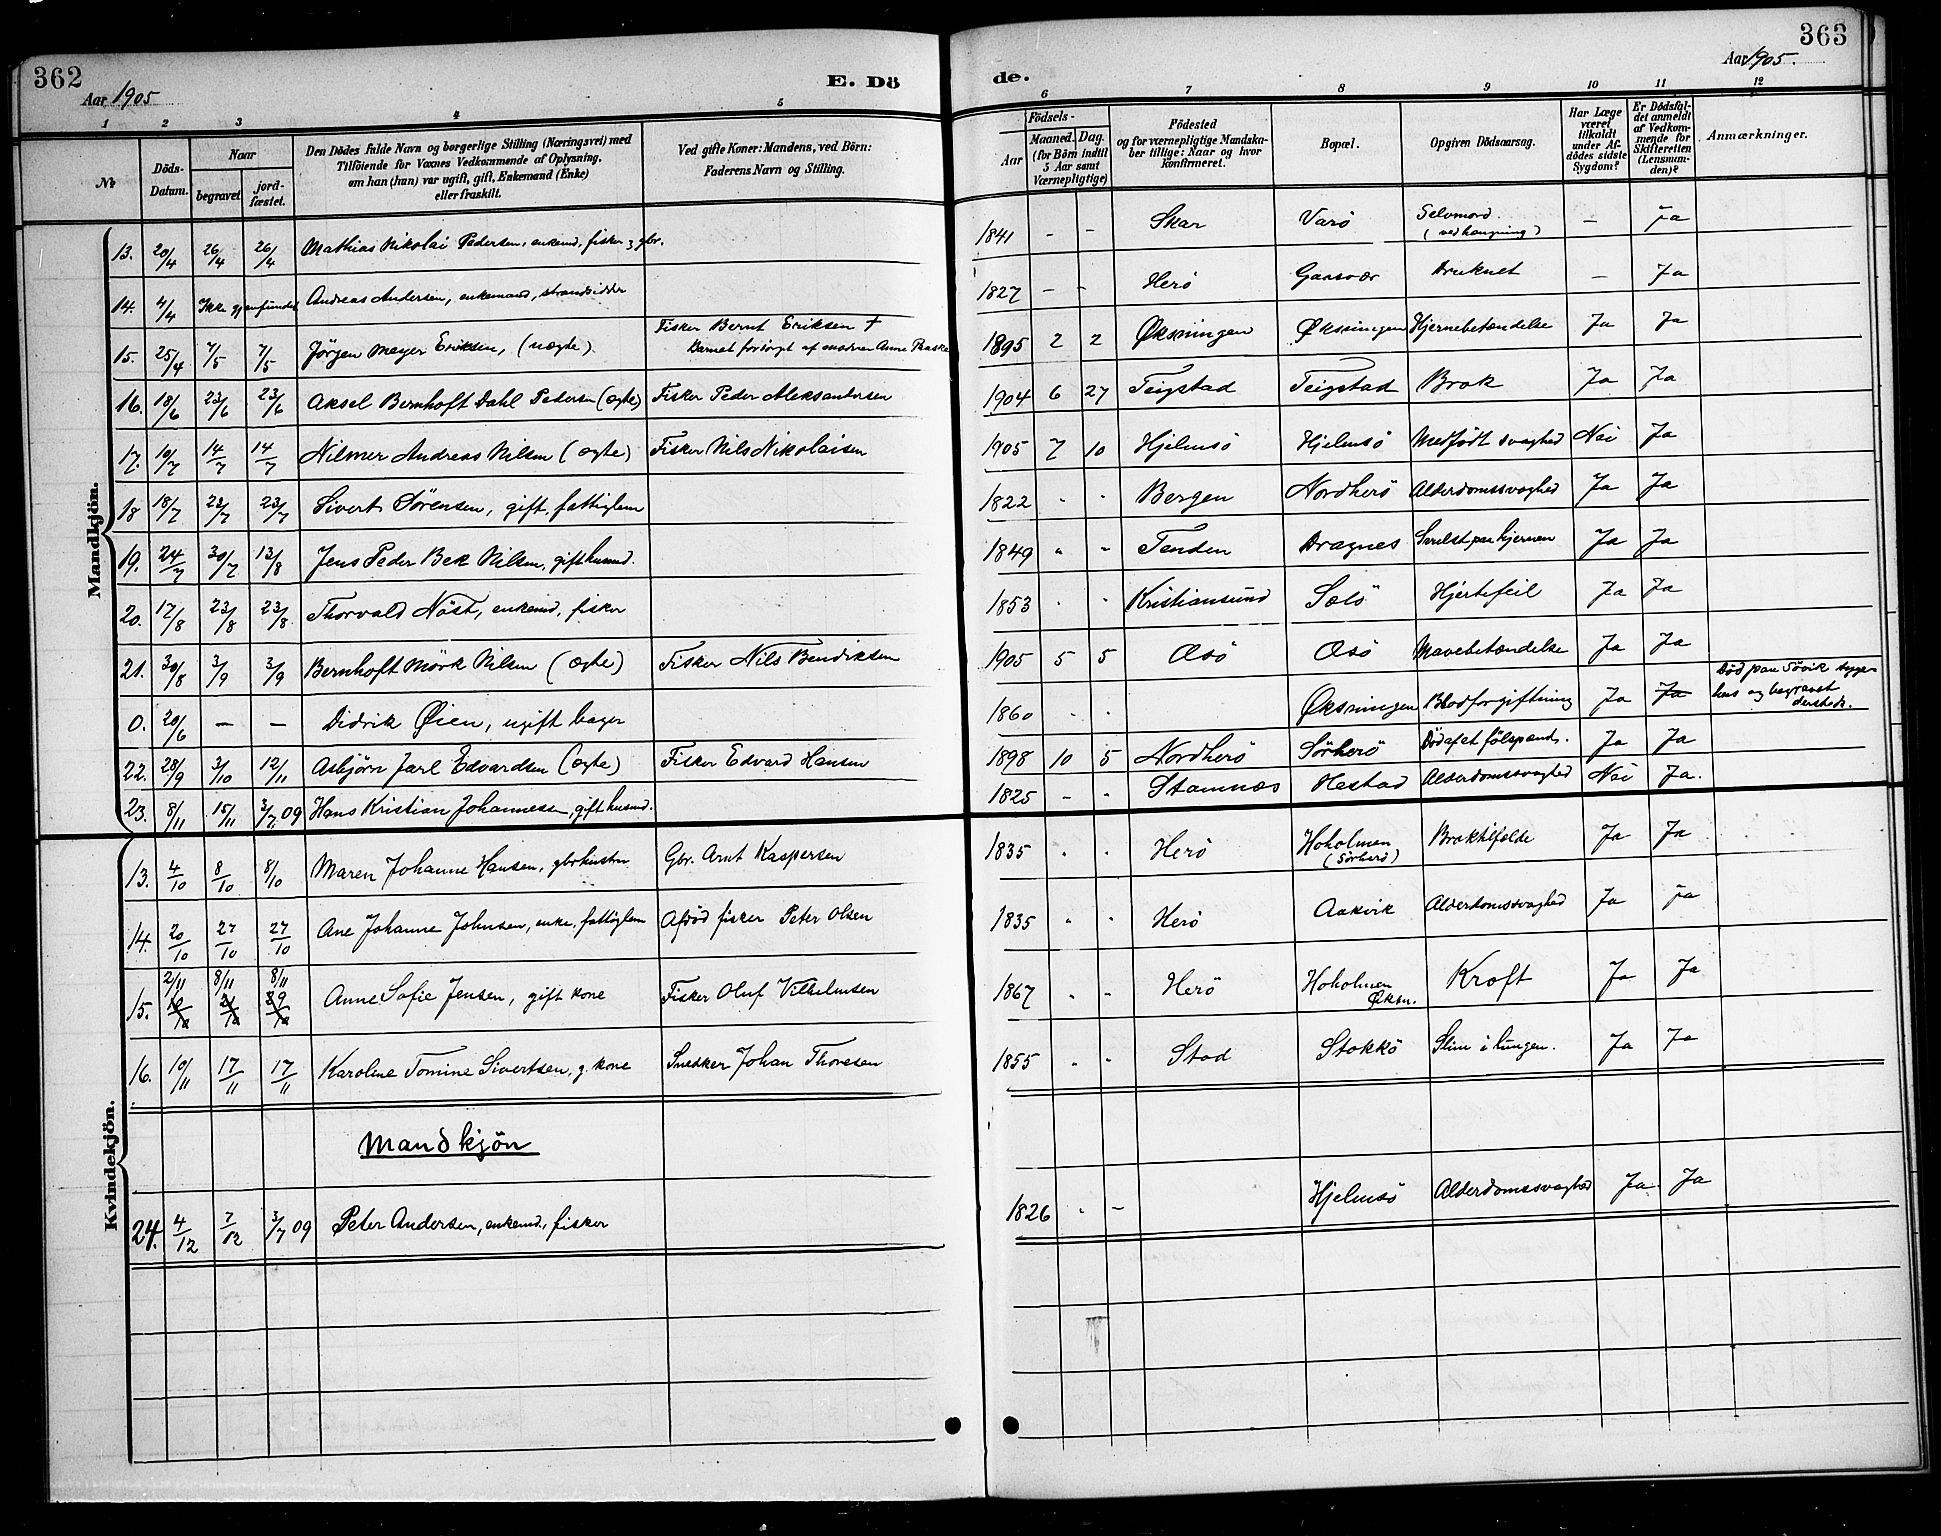 362
Aar 1905
E. Dö
1 2 3 4 5
№
Döds-
Datum.
Naar
begravet
jord-
fæstet.
Den Dödes fulde Navn og borgerlige Stilling (Næringsvei) med
Tilföiende for Voxnes Vedkommende af Oplysning,
om han (hun) var ugift, gift, Enkemand (Enke)
eller fraskilt.
Ved gifte Koner: Mandens, ved Börn:
Faderens Navn og Stilling.
Mandkjön.
13. 20/4 26/4 26/4 Mathias Nikolai Pedersen, enkemd, fisker & gbr.
14. 4/4 Ikke gjenfundet Andreas Andersen, enkemand, strandsidder
15. 25/4 7/5 7/5 Jörgen Meyer Eriksen, (uægte) Fisker Bernt Eriksen +
Barnet forsörgt af moderen Anne
16. 18/6 23/6 23/6 Aksel Bernhoft Dahl Pedersen (ægte) Fisker Peder Aleksandersen
17. 10/7 14/7 14/7 Nilmer Andreas Nilsen (ægte) Fisker Nils Nikolaisen
18 18/7 23/7 23/7 Sivert Sörensen, gift, fattiglem
19. 24/7 30/7 13/8 Jens Peder Bek Nilsen, gift husmd.
20. 17/8 23/8 23/8 Thorvald Nöst, enkemd, fisker
21. 30/8 3/9 3/9 Bernhoft Mörk Nilsen (ægte) Fisker Nils Bendiksen
0. 20/6 — — Didrik Øien, ugift bager
22. 28/9 3/10 12/11 Asbjörn Jarl Edvardsen (ægte) Fisker Edvard Hansen
23. 8/11 15/11 3/7 09 Hans Kristian Johannesen, gift husmd.
Kvindekjön.
13. 4/10 8/10 8/10 Maren Johanne Hansen, gbrhustru Gbr. Arnt Kaspersen
14. 20/10 27/10 27/10 Ane Johanne Johnsen, enke, fattiglem Afdöd fisker Peter Olsen
15. 2/11 8/11 8/11 Anne Sofie Jensen, gift kone Fisker Oluf Vilhelmsen
16. 10/11 17/11 17/11 Karoline Tomine Sivertsen, g. kone Snedker Johan Thoresen
Mandkjön
24. 4/12 7/12 3/7 09 Peter Andersen, enkemd, fisker
363
Aar 1905.
de.
6 7 8 9 10 11 12
Födsels-
Aar
Maaned. Dag.
(for Börn indtil
5 Aar samt
Værnepligtige)
Födested
og for værnepligtige Mandska-
ber tillige: Naar og hvor
konfirmeret.
Bopæl.
Opgiven Dödsaarsag.
Har Læge
været
tilkaldt
under Af-
dödes sidste
Sygdom?
Er Dödsfal-
det anmeldt
af Vedkom-
mende for
Skifteretten
(Lensman-
den)?
Anmærkninger.
1841 - - Skar Varö Selvmord (ved hængning) — Ja
1827 - - Herö Gaasvær Druknet — Ja
1895 2 2 Øksningen Øksningen Hjernebetændelse Ja Ja
1904 6 27 Teigstad Teigstad Brok Ja Ja
1905 7 10 Hjelmsö Hjelmsö Medfödt svaghed Nei Ja
1822 " " Bergen Nordherö Alderdomssvaghed Ja Ja
1849 " " Tenden Dragnes Svulst paa hjernen Ja Ja
1853 " " Kristiansund Sælö Hjertefeil Ja Ja
1905 5 5 Æsö Æsö Mavebetændelse Ja Ja
1860 " " Øksningen Blodforgiftning Ja Ja Död paa Sövik syge-
hus og begravet
dersteds.
1898 10 5 Nordherö Sörherö Död af et fölspænd. Ja Ja
1825 - " Stamnes Hestad Alderdomssvaghed Nei Ja.
1835 " " Herö Hoholmen (Sörherö) Broktilfælde Ja Ja
1835 " " Herö Aakvik Alderdomssvaghed Ja Ja
1867 " " Herö Hoholmen Øksn. Kræft Ja Ja
1855 " " Stod Stokkö Slim i lungen. Ja Ja
1826 " - Hjelmsö Alderdomssvaghed Ja Ja